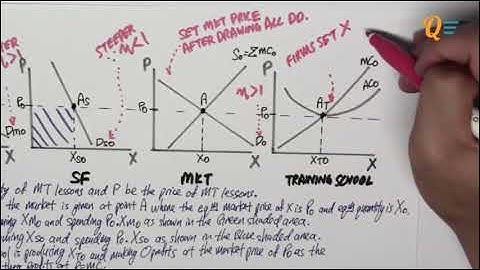 STEEPER
η<1
SET MKT PRICE
AFTER DRAWING ALL DD.
FIRMS SET X
η>1
P
P₀
As
Dmo
Dso
Xso
X
SF
P
P₀
A
S₀=ΣMC₀
D₀
X₀
X
MKT
P
P₀
A
MC₀
AC₀
XTO
X
TRAINING SCHOOL
ty of MT lessons and P be the price of MT lessons.
the market is given at point A where the eqm market price of X is P₀ and eqm quantity is X₀.
uming Xmo and spending P₀.Xmo as shown in the Green shaded area.
uming Xso and spending P₀.Xso as shown in the Blue shaded area.
is producing XTO and making 0 profits at the market price of P₀ as the
profits at P₀=MC